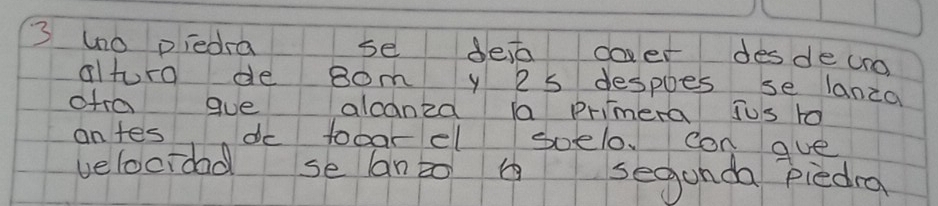 3 una piedra se deja caer desde una
altura de 80m y 2s despues se lanza
otra que alcanza la primera justo
antes de tocar el suelo. con que
velocidad se lanzo la segunda piedra